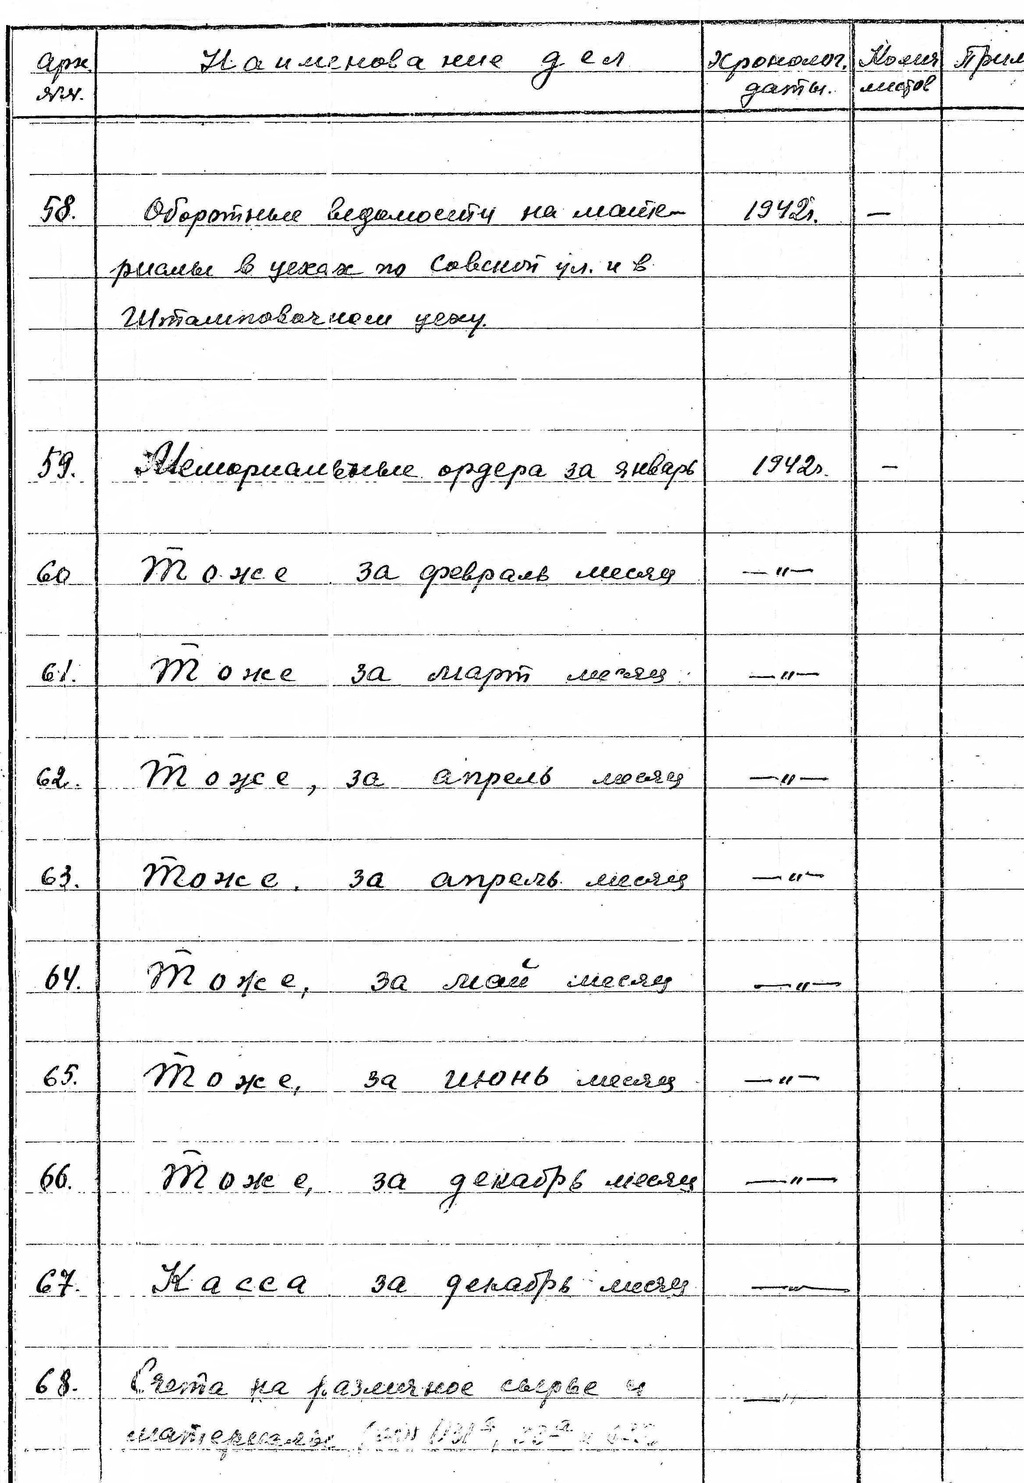 Арх. Наименование дел Хронолог. Колич. Прим
№№. даты. листов
58. Оборотные ведомости на мате- 1942г. —
риалы в цехах по Совской ул. и в
Штамповочном цеху.
59. Мемориальные ордера за январь 1942г. —
60 Тоже за февраль месяц —"—
61. Тоже за март месяц —"—
62. Тоже, за апрель месяц —"—
63. Тоже. за апрель месяц —"—
64. Тоже, за май месяц —"—
65. Тоже, за июнь месяц —"—
66. Тоже, за декабрь месяц —"—
67. Касса за декабрь месяц —"—
68. Счета на различное сырье и —"—
материалы